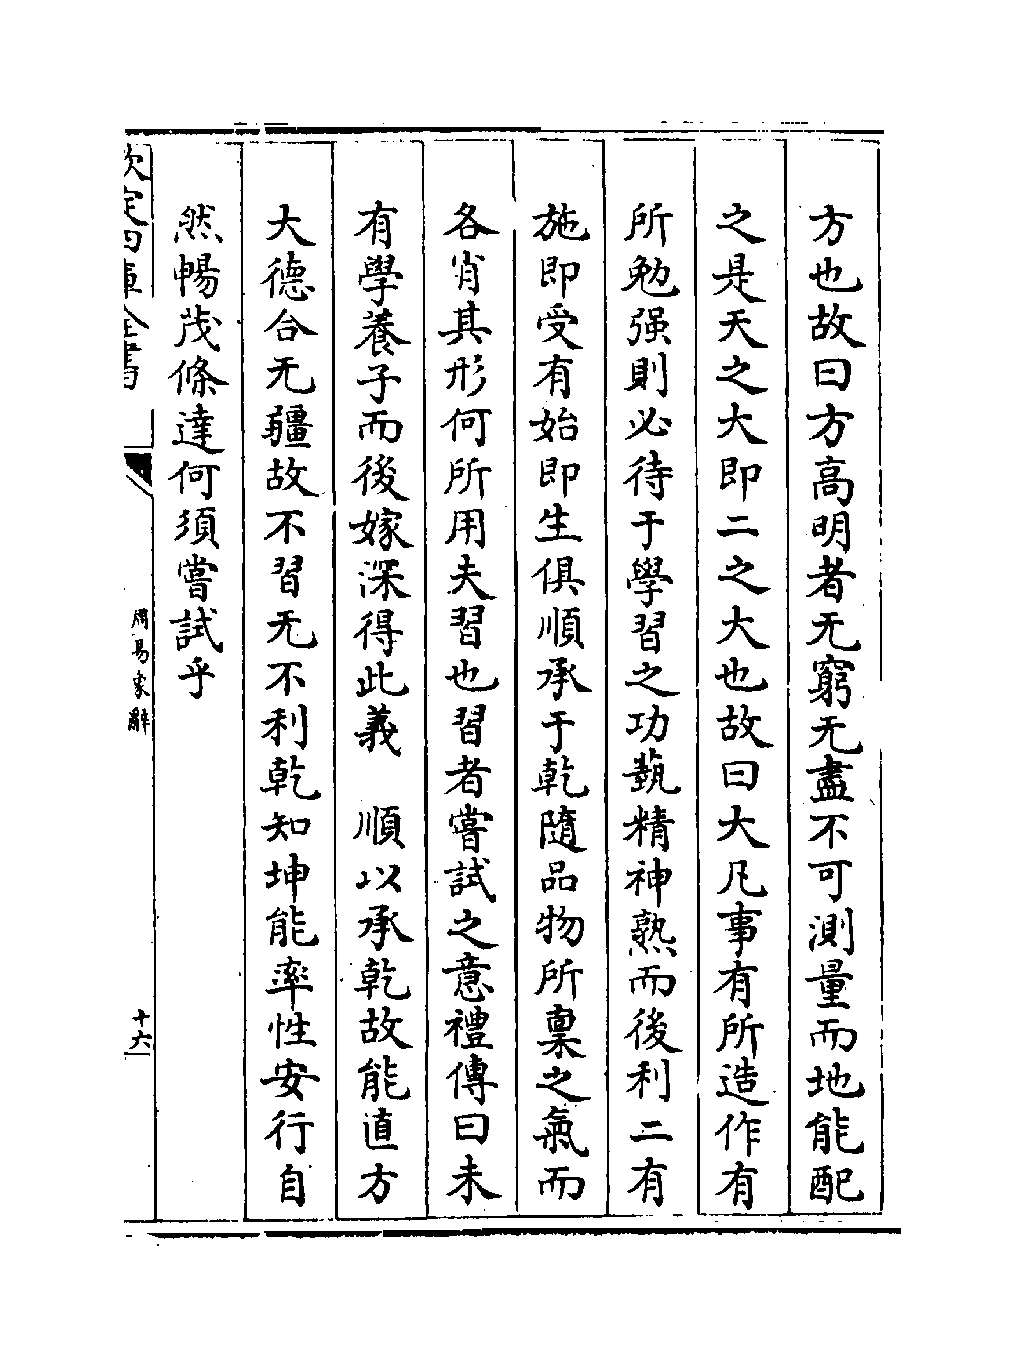 方也故曰方高明者无窮无盡不可測量而地能配
之是天之大即二之大也故曰大凡事有所造作有
所勉强則必待于學習之功蓺精神熟而後利二有
施即受有始即生俱順承于乾隨品物所稟之氣而
各肖其形何所用夫習也習者嘗試之意禮傳曰未
有學養子而後嫁深得此義　順以承乾故能直方
大德合无疆故不習无不利乾知坤能率性安行自
然暢茂條達何須嘗試乎
欽定四庫全書
周易象辭
十六